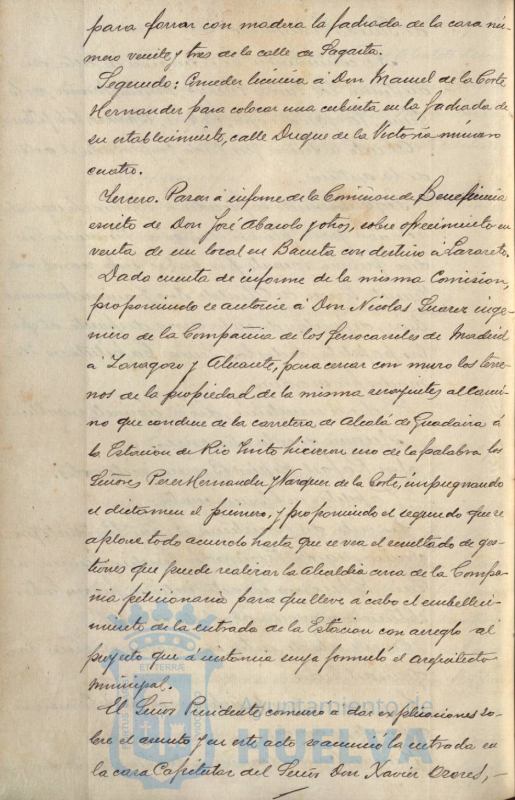 para forrar con madera la fachada de la casa nú-
mero veinte y tres de la calle de Sagasta.
Segundo: Conceder licencia á Don Manuel de la Corte
Hernandez para colocar una cubierta en la fachada de
su establecimiento, calle Duque de la Victoria número
cuatro.
Tercero. Pasar á informe de la Comision de Beneficencia
escrito de Don José y otros, sobre ofrecimiento en
venta de un local en con destino á Lazareto.
Dada cuenta de informe de la misma Comision,
proponiendo se autorice á Don Nicolas Suarez inge-
niero de la Compañia de los ferrocarriles de Madrid
á Zaragoza y Alicante, para cercar con muro los terre-
nos de la propiedad de la misma recayentes al cami-
no que conduce de la carretera de Alcalá de Guadaira á
la Estacion de Rio Tinto hicieron uso de la palabra los
Señores Perez Hernandez y Vazquez de la Corte, impugnando
el dictamen el primero, y proponiendo el segundo que se
aplace todo acuerdo hasta que se vea el resultado de ges-
tiones que puede realizar la Alcaldia cerca de la Compa-
ñia peticionaria para que lleve á cabo el embelleci-
miento de la entrada de la Estacion con arreglo al
proyecto que á instancia suya formuló el arquitecto
municipal.
El Señor Presidente comenzó á dar explicaciones so-
bre el asunto y en este acto se anunció la entrada en
la casa Capitular del Señor Don Xavier Ozores,-
Ayuntamiento de
HUELVA